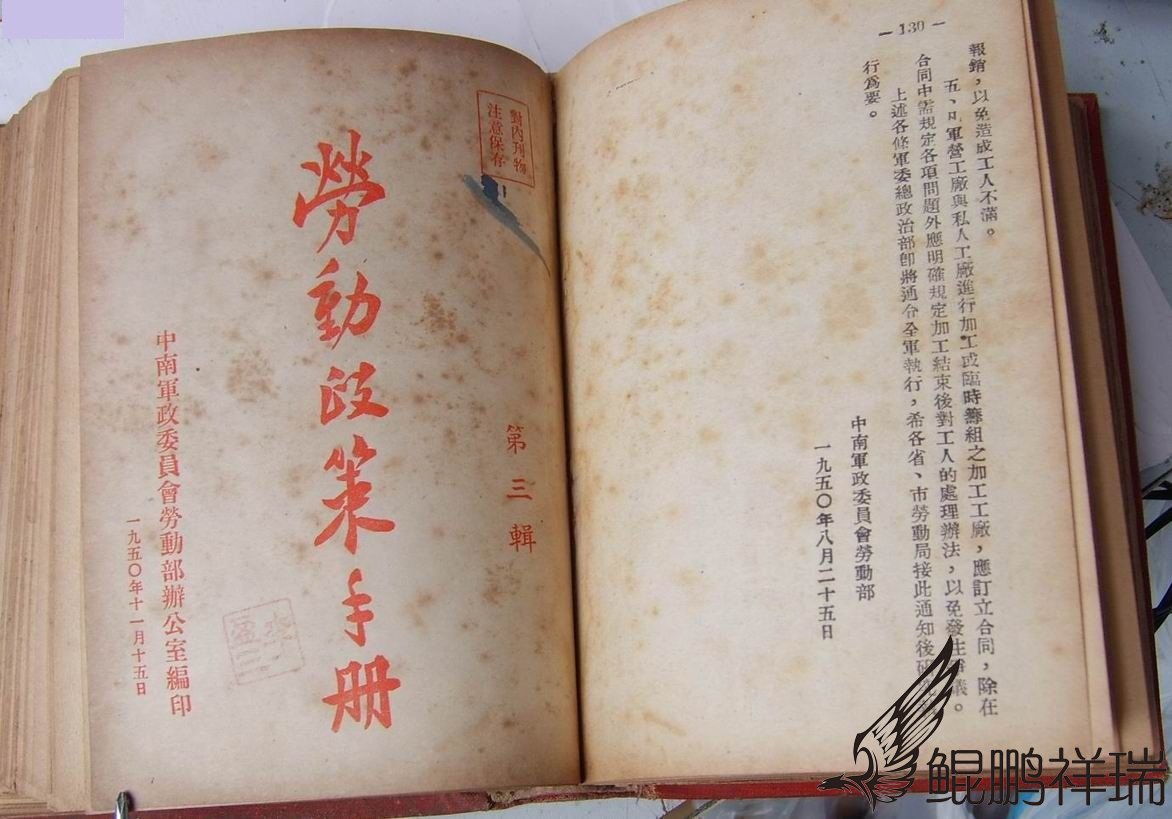 — 130 —
報銷，以免造成工人不滿。
五、凡軍營工廠與私人工廠進行加工或臨時籌組之加工工廠，應訂立合同，除在
合同中需規定各項問題外應明確規定加工結束後對工人的處理辦法，以免發生爭議。
上述各條軍委總政治部卽將通令全軍執行，希各省、市勞動局接此通知後
行爲要。
中南軍政委員會勞動部
一九五〇年八月二十五日
對內刊物
注意保存
第三輯
勞動政策手册
中南軍政委員會勞動部辦公室編印
一九五〇年十一月十五日
鲲鹏祥瑞